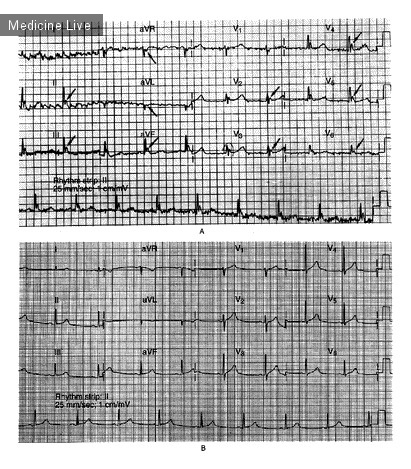 Medicine Live
aVR V1 V4
II aVL V2 V5
III aVF V3 V6
Rhythm strip: II
25 mm/sec; 1 cm/mV
A
I aVR V1 V4
II aVL V2 V5
III aVF V3 V6
Rhythm strip: II
25 mm/sec; 1 cm/mV
B